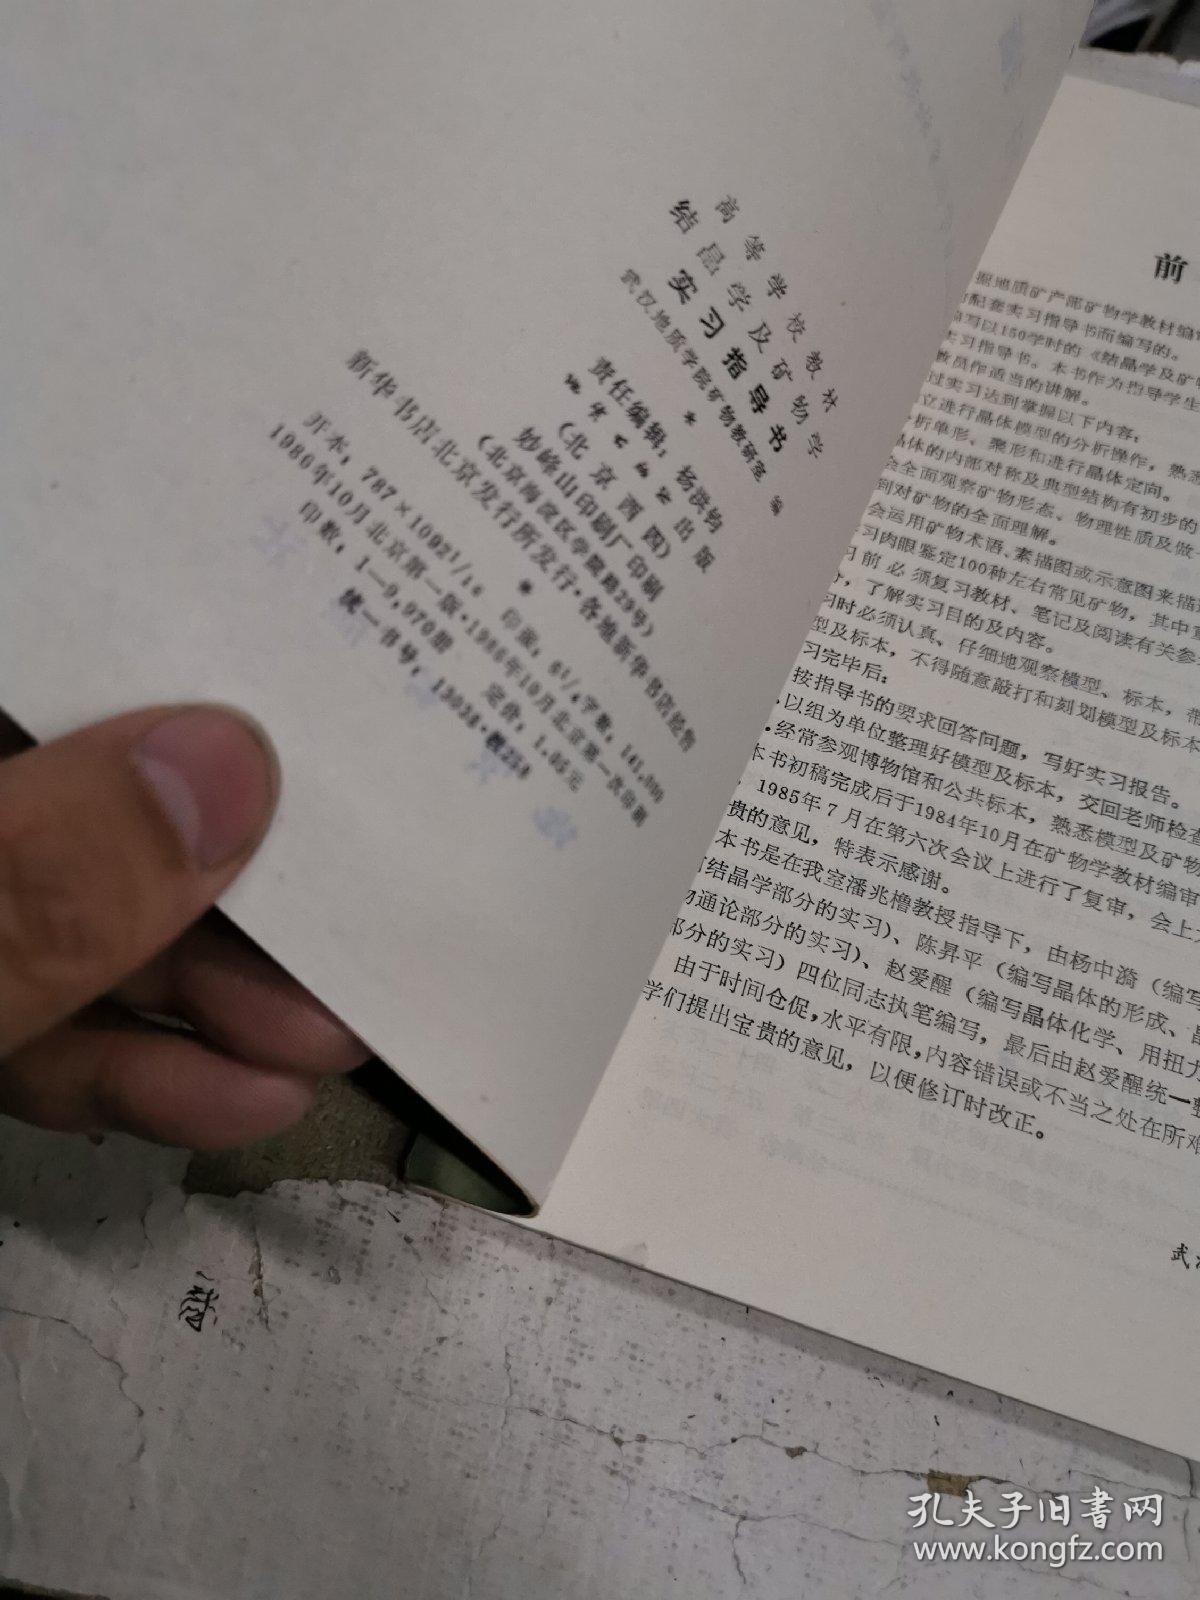 高等学校教材
结晶学及矿物学
实习指导书
武汉地质学院矿物教研室 编
责任编辑：杨洪钧
地质出版社出版
（北京西四）
妙峰山印刷厂印刷
（北京海淀区学院路29号）
新华书店北京发行所发行·各地新华书店经售
开本：787×1092 1/16 印张：6 1/4 字数：141,000
1986年10月北京第一版·1986年10月北京第一次印刷
印数：1—9,970册 定价：1.05元
统一书号：13038·教254
前
据地质矿产部矿物学教材编
配套实习指导书而编写的。
编写以150学时的《结晶学及矿
实习指导书。本书作为指导学生
教员作适当的讲解。
过实习达到掌握以下内容：
立进行晶体模型的分析操作，熟悉
析单形、聚形和进行晶体定向。
晶体的内部对称及典型结构有初步的
会全面观察矿物形态、物理性质及做
到对矿物的全面理解。
会运用矿物术语、素描图或示意图来描
学习肉眼鉴定100种左右常见矿物，其中
习前必须复习教材、笔记及阅读有关参
，了解实习目的及内容。
习时必须认真、仔细地观察模型、标本，带
型及标本，不得随意敲打和刻划模型及标本
习完毕后：
按指导书的要求回答问题，写好实习报告。
以组为单位整理好模型及标本，交回老师检查
经常参观博物馆和公共标本，熟悉模型及矿物
本书初稿完成后于1984年10月在矿物学教材编审
1985年7月在第六次会议上进行了复审，会上
贵的意见，特表示感谢。
本书是在我室潘兆橹教授指导下，由杨中漪（编写
结晶学部分的实习）、陈昇平（编写晶体的形成、
物通论部分的实习）、赵爱醒（编写晶体化学、用扭力
部分的实习）四位同志执笔编写，最后由赵爱醒统一整
由于时间仓促，水平有限，内容错误或不当之处在所难
学们提出宝贵的意见，以便修订时改正。
武
孔夫子旧书网
www.kongfz.com